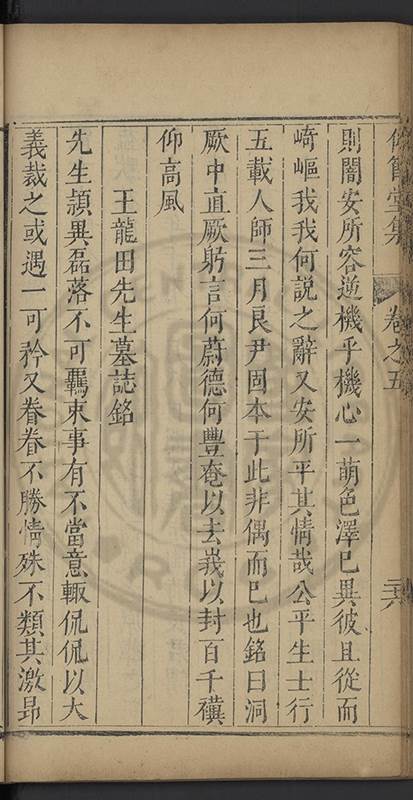 節堂集 卷之五
則闇安所容遁機乎機心一萌色澤已異彼且從而
崎嶇我我何説之辭又安所平其情哉公平生士行
五載人師三月良尹固本于此非偶而已也銘曰洞
厥中直厥躬言何蔚德何豐奄以去峩以封百千禩
仰高風
王龍田先生墓誌銘
先生頴異磊落不可羈束事有不當意輙侃侃以大
義裁之或遇一可矜又眷眷不勝情殊不類其激昂